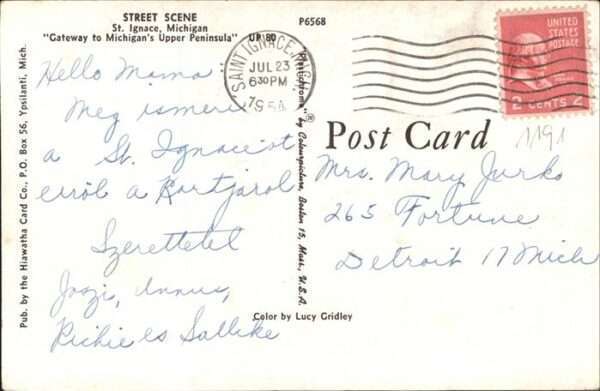 STREET SCENE
St. Ignace, Michigan
"Gateway to Michigan's Upper Peninsula"
UP 80
P6568
SAINT IGNACE, MICH.
JUL 23
630PM
195
UNITED
STATES
POSTAGE
2 CENTS 2
Hello Mama
Meg ismeri
a St. Ignaciot
erröl a Kartjarol
Szeretettel
Joozi, Annus,
Richie es Sallike
Post Card
1191
Mrs. Mary Jurko
265 Fortune
Detroit 17 Mich
Pub. by the Hiawatha Card Co., P.O. Box 56, Ypsilanti, Mich.
"Plastichrome" ® by Colourpicture, Boston 15, Mass., U.S.A.
Color by Lucy Gridley